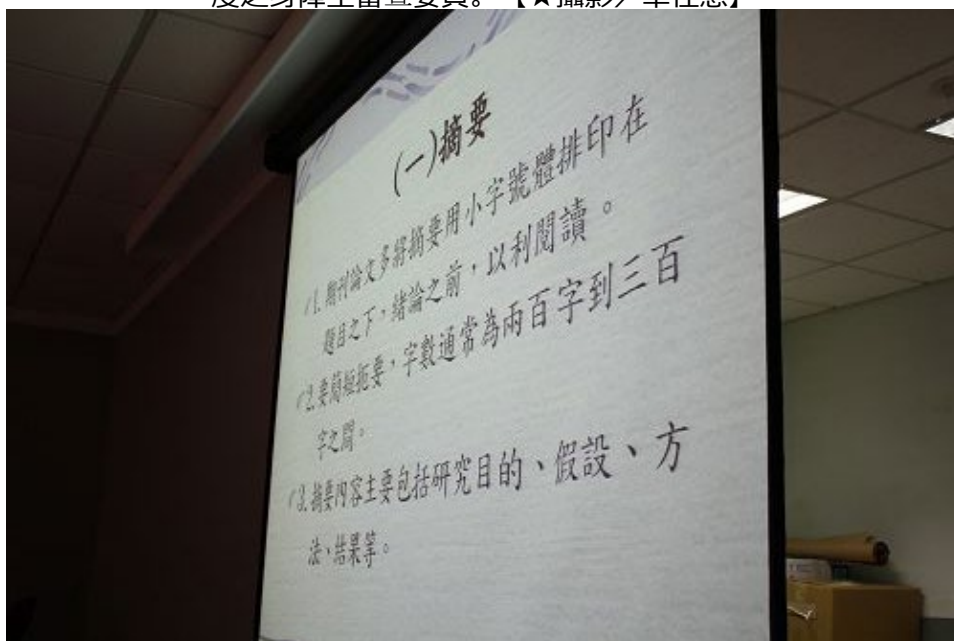 (一)摘要
1.期刊論文多將摘要用小字號體排印在
題目之下，緒論之前，以利閱讀。
2.要簡短扼要，字數通常為兩百字到三百
字之間。
3.摘要內容主要包括研究目的、假設、方
法、結果等。